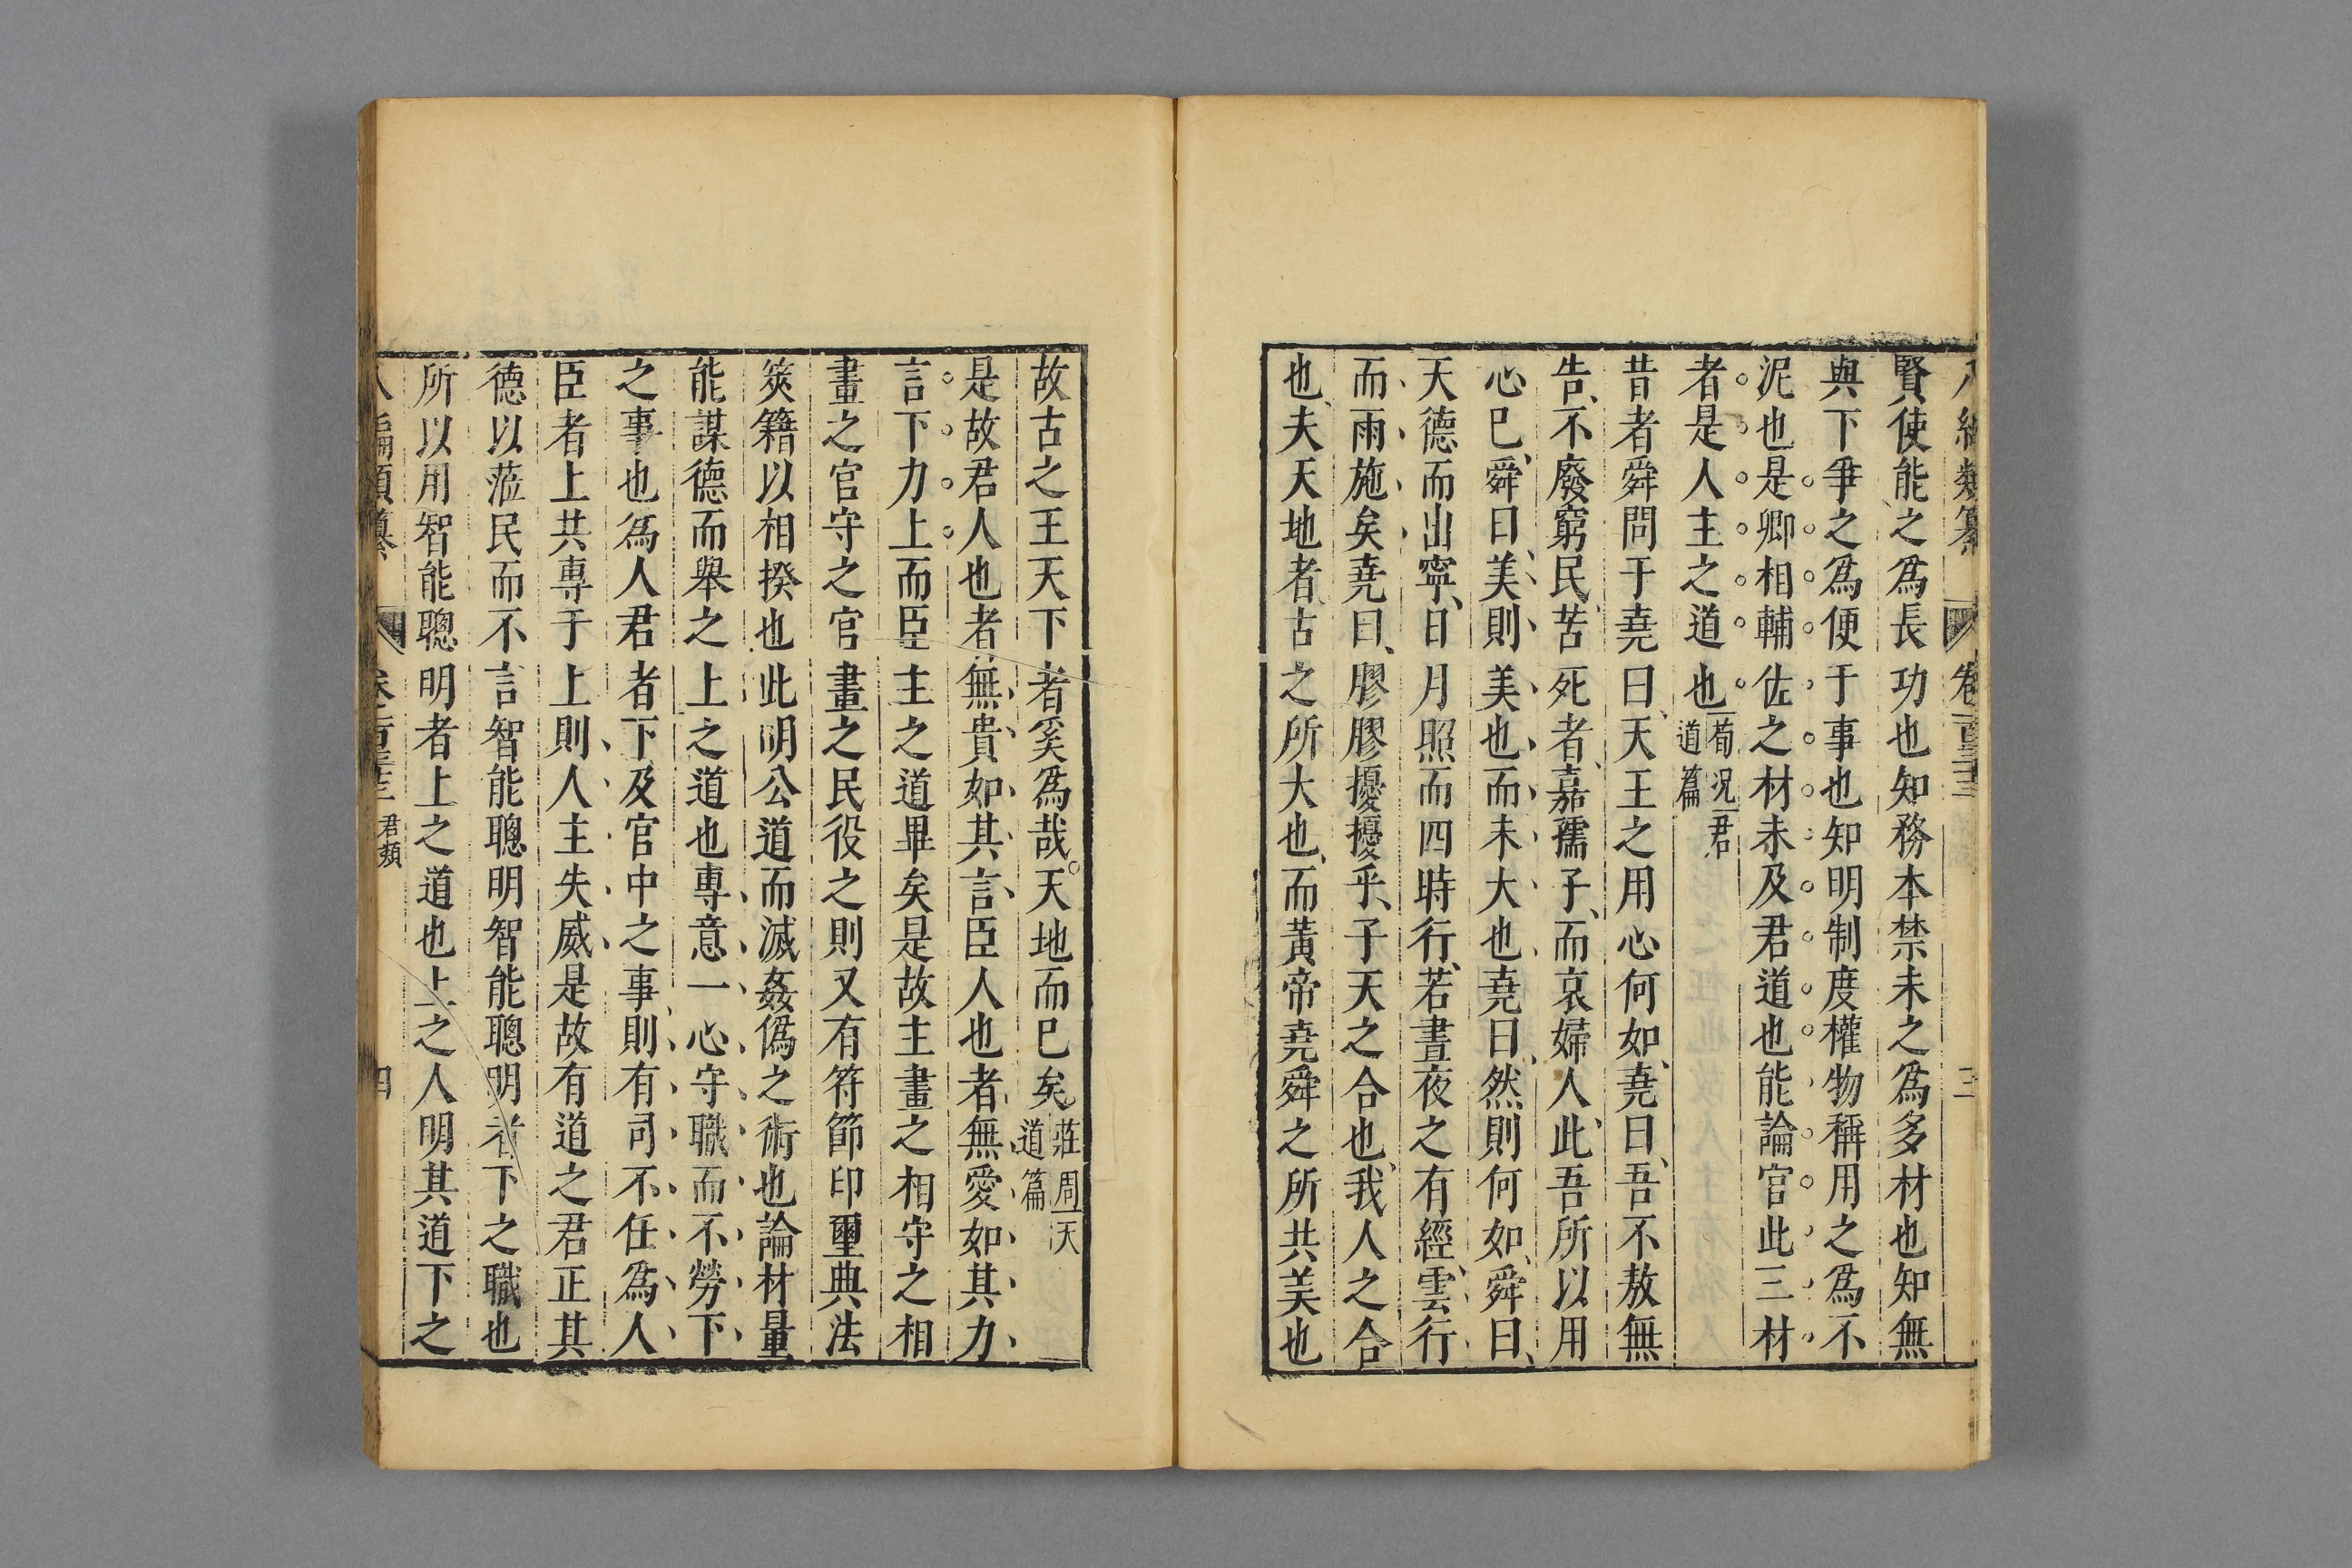 八編類纂 卷一百三十三 三
賢使能之爲長功也知務本禁末之爲多材也知無
與下爭之爲便于事也知明制度權物稱用之爲不
泥也是卿相輔佐之材未及君道也能論官此三材
者是人主之道也荀況君道篇
昔者舜問于堯曰天王之用心何如堯曰吾不敖無
告不廢窮民苦死者嘉孺子而哀婦人此吾所以用
心巳舜曰美則美也而未大也堯曰然則何如舜曰
天德而出寧日月照而四時行若晝夜之有經雲行
而雨施矣堯曰膠膠擾擾乎子天之合也我人之合
也夫天地者古之所大也而黃帝堯舜之所共美也
故古之王天下者奚爲哉天地而巳矣莊周天道篇
是故君人也者無貴如其言臣人也者無愛如其力
言下力上而臣主之道畢矣是故主畫之相守之相
畫之官守之官畫之民役之則又有符節印璽典法
筴籍以相揆也此明公道而滅姦僞之術也論材量
能謀德而舉之上之道也專意一心守職而不勞下
之事也爲人君者下及官中之事則有司不任爲人
臣者上共專于上則人主失威是故有道之君正其
德以蒞民而不言智能聰明智能聰明者下之職也
所以用智能聰明者上之道也上之人明其道下之
八編類纂 卷一百三十三 君類 四